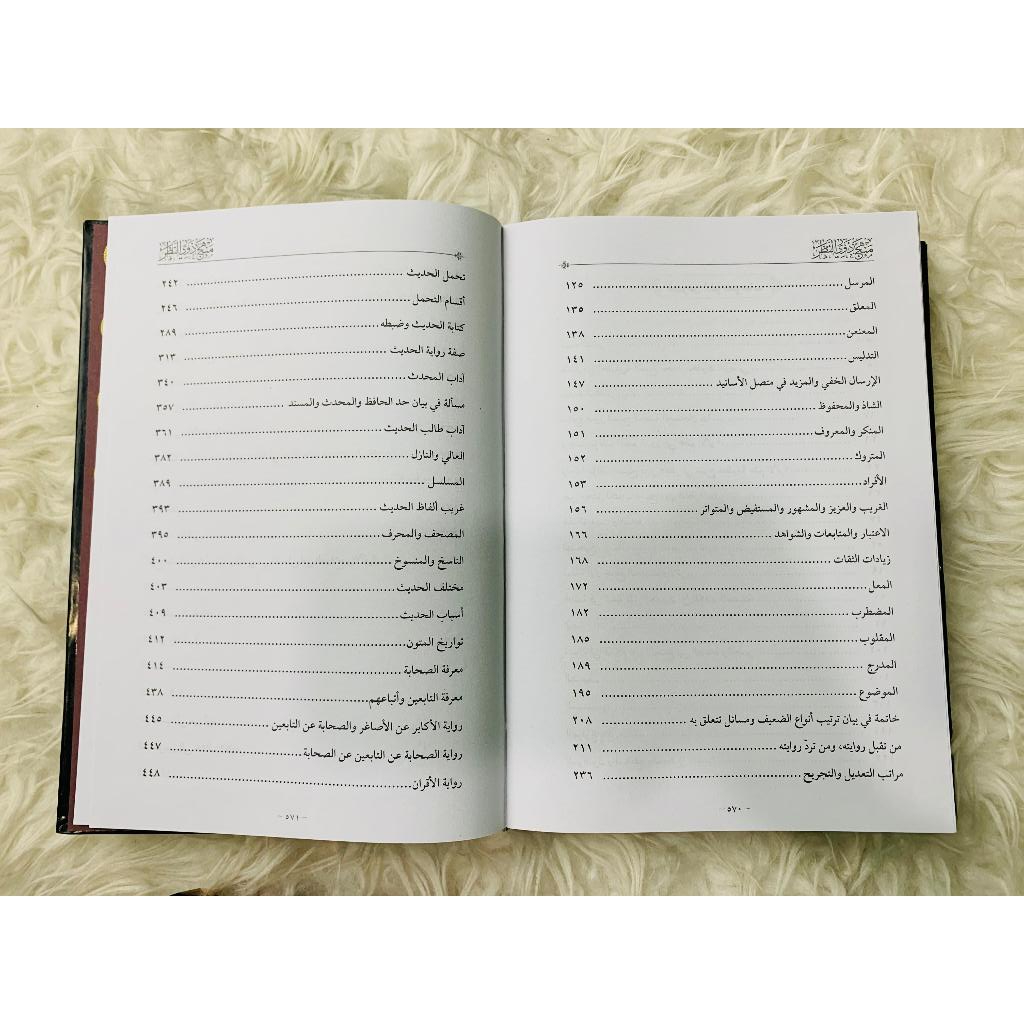 منهج ذوي النظر
المرسل ........ ١٢٥
المعلق ........ ١٣٥
المعنعن ........ ١٣٨
التدليس ........ ١٤١
الإرسال الخفي والمزيد في متصل الأسانيد ........ ١٤٧
الشاذ والمحفوظ ........ ١٥٠
المنكر والمعروف ........ ١٥١
المتروك ........ ١٥٢
الأفراد ........ ١٥٣
الغريب والعزيز والمشهور والمستفيض والمتواتر ........ ١٥٦
الاعتبار والمتابعات والشواهد ........ ١٦٦
زيادات الثقات ........ ١٦٨
المعل ........ ١٧٢
المضطرب ........ ١٨٢
المقلوب ........ ١٨٥
المدرج ........ ١٨٩
الموضوع ........ ١٩٥
خاتمة في بيان ترتيب أنواع الضعيف ومسائل تتعلق به ........ ٢٠٨
من تقبل روايته، ومن تردّ روايته ........ ٢١١
مراتب التعديل والتجريح ........ ٢٣٦
- ٥٧٠ -
منهج ذوي النظر
تحمل الحديث ........ ٢٤٢
أقسام التحمل ........ ٢٤٦
كتابة الحديث وضبطه ........ ٢٨٩
صفة رواية الحديث ........ ٣١٣
آداب المحدث ........ ٣٤٠
مسألة في بيان حد الحافظ والمحدث والمسند ........ ٣٥٧
آداب طالب الحديث ........ ٣٦١
العالي والنازل ........ ٣٨٢
المسلسل ........ ٣٨٩
غريب ألفاظ الحديث ........ ٣٩٣
المصحف والمحرف ........ ٣٩٥
الناسخ والمنسوخ ........ ٤٠٠
مختلف الحديث ........ ٤٠٣
أسباب الحديث ........ ٤٠٩
تواريخ المتون ........ ٤١٢
معرفة الصحابة ........ ٤١٤
معرفة التابعين وأتباعهم ........ ٤٣٨
رواية الأكابر عن الأصاغر والصحابة عن التابعين ........ ٤٤٥
رواية الصحابة عن التابعين عن الصحابة ........ ٤٤٧
رواية الأقران ........ ٤٤٨
- ٥٧١ -